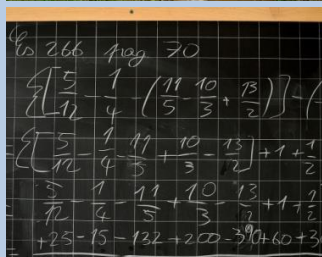 Es 266 pag 70
{[5/12 - 1/4 - (11/5 - 10/3 + 13/2)] - (
= {[5/12 - 1/4 - 11/5 + 10/3 - 13/2] + 1 + 1/2
= 5/12 - 1/4 - 11/5 + 10/3 - 13/2 + 1 + 1/2
+25 - 15 - 132 + 200 - 390 + 60 + 3